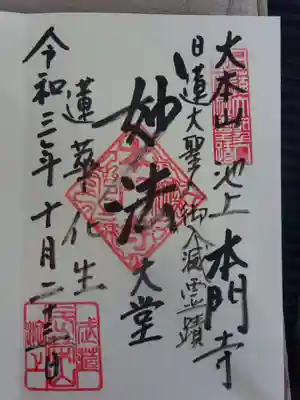 大本山 池上 本門寺
日蓮大聖人御入滅霊蹟
妙法
大堂
蓮華化生
令和三年十月二十三日